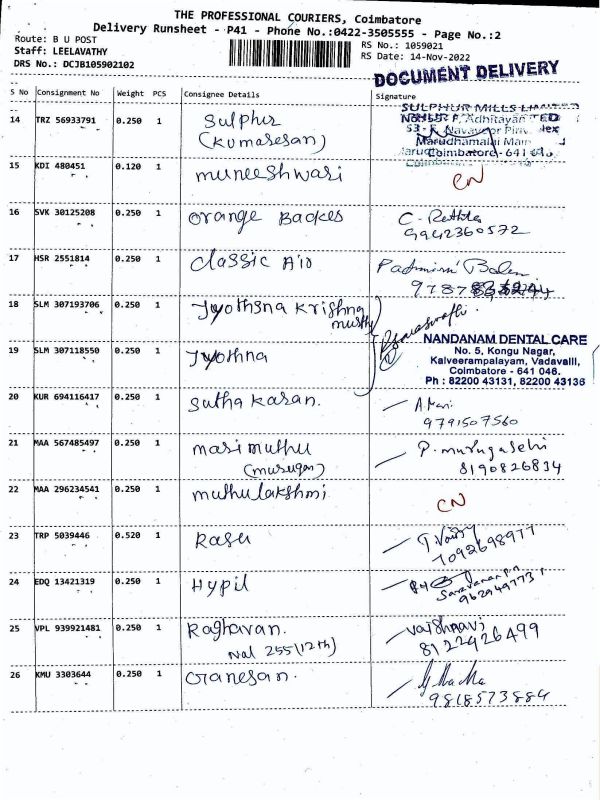 THE PROFESSIONAL COURIERS, Coimbatore
Delivery Runsheet - P41 - Phone No.:0422-3505555 - Page No.:2
Route: B U POST
RS No.: 1059021
Staff: LEELAVATHY
RS Date: 14-Nov-2022
DRS No.: DCJB105902102
DOCUMENT DELIVERY
S No Consignment No Weight PCS Consignee Details Signature
14 TRZ 56933791 0.250 1 Sulphur
(Kumaresan)
SULPHUR MILLS LIMITED
Marudhamalai Main
Coimbatore - 641
15 KDI 480451 0.120 1 muneeshwari CN
16 SVK 30125208 0.250 1 Orange Backes
9942360572
17 HSR 2551814 0.250 1 Classic Aid Padmini
18 SLM 307193706 0.250 1 Jyothsna Krishna
murthy
19 SLM 307118550 0.250 1 Jyothna
NANDANAM DENTAL CARE
No. 5, Kongu Nagar,
Kalveerampalayam, Vadavalli,
Coimbatore - 641 046.
Ph : 82200 43131, 82200 43136
20 KUR 694116417 0.250 1 Sutha Karan. A Mari
9791507560
21 MAA 567485497 0.250 1 mari muthu P. murugaselvi
(murugan) 8190826834
22 MAA 296234541 0.250 1 muthulakshmi CN
23 TRP 5039446 0.520 1 Rasu
7092698977
24 EDQ 13421319 0.250 1 Hypil
Saravanan
25 VPL 939921481 0.250 1 Raghavan. Vaishnavi
Nal 255 (12th) 8122926499
26 KMU 3303644 0.250 1 Ganesan.
9818573884